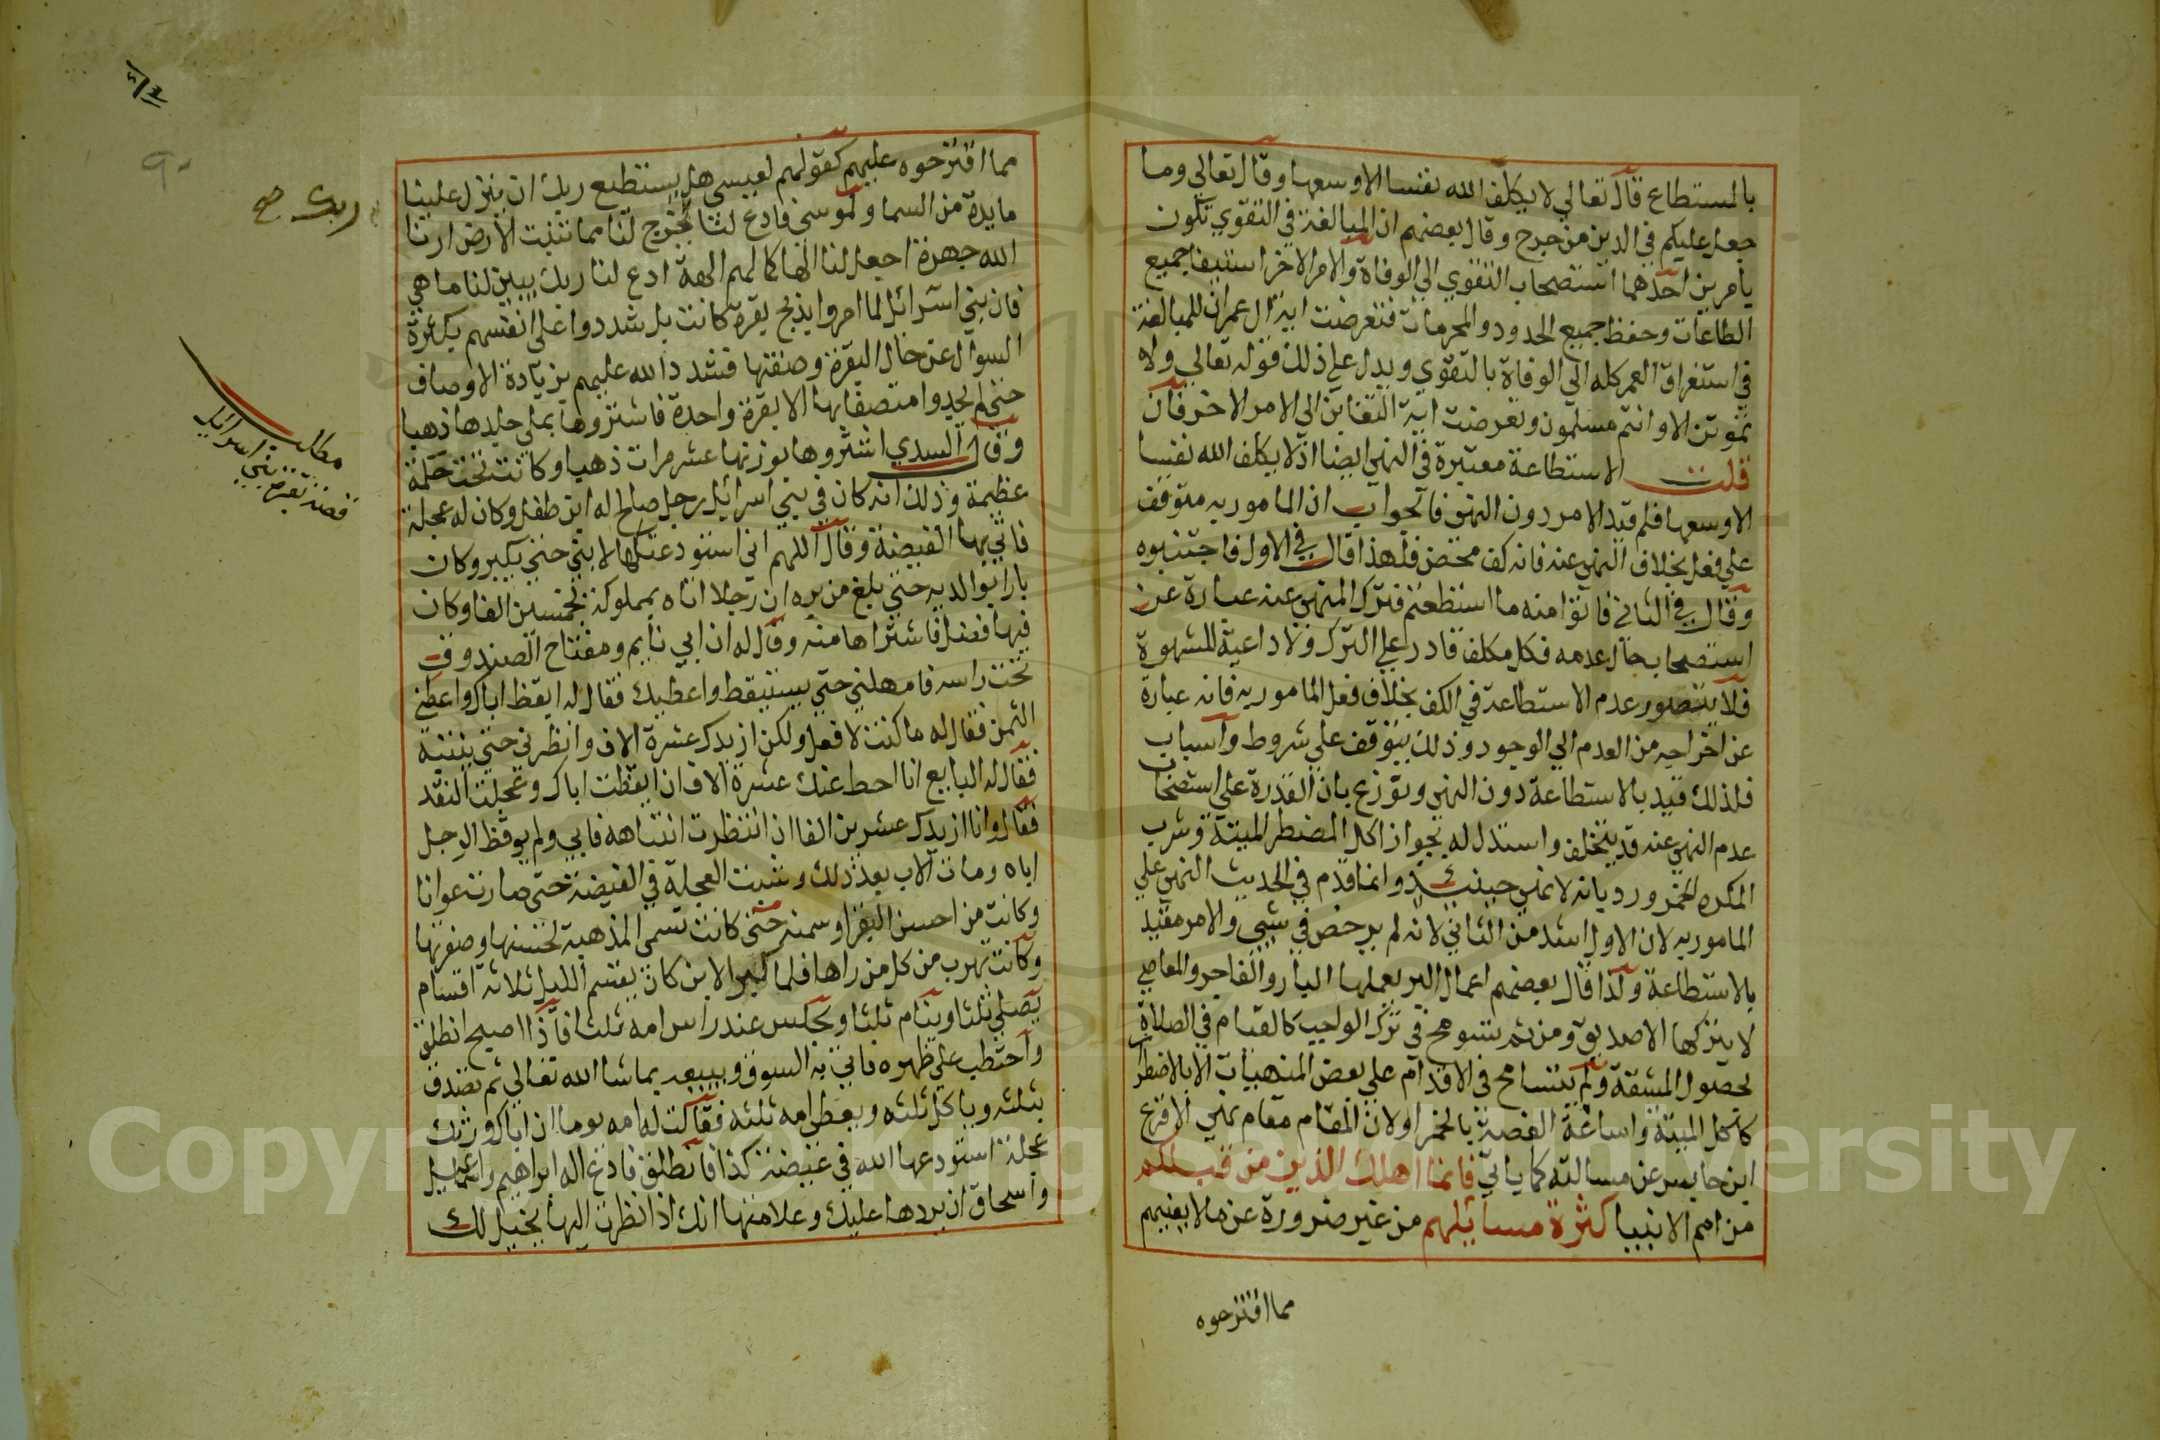 بالمستطاع قال تعالي لا يكلف الله نفسا الا وسعها وقال تعالي وما
جعل عليكم في الدين من حرج وقال بعضهم ان المبالغة في التقوي تكون
بامرين احدهما استصحاب التقوي الي الوفاة والامر الاخر استيفا جميع
الطاعات وحفظ جميع الحدود والمحرمات فتعرضت اية ال عمران للمبالغة
في استغراق العمر كله الي الوفاة بالتقوي ويدل علي ذلك قوله تعالي ولا
تموتن الا وانتم مسلمون وتعرضت اية التغابن الي الامر الاخر فان
قلت الاستطاعة معتبرة في النهي ايضا اذ لا يكلف الله نفسا
الا وسعها فلم قيد الامر دون النهي فالجواب ان المامور به متوقف
علي فعل بخلاف النهي عنه فانه كف محض فلهذا قال في الاول فاجتنبوه
وقال في الثاني فاتوا منه ما استطعتم فترك المنهي عنه عبارة عن
استصحاب حال عدمه فكل مكلف قادر علي الترك ولا داعية للشهوة
فلا يتصور عدم الاستطاعة في الكف بخلاف فعل المامور به فانه عبارة
عن اخراجه من العدم الي الوجود وذلك يتوقف علي شروط واسباب
فلذلك قيد بالاستطاعة دون النهي ونوزع بان القدرة علي استصحاب
عدم النهي عنه قد يتخلف واستدل له بجواز اكل المضطر الميتة وشرب
المكره الخمر ورد بانه لا نهي حينئذ وانما قدم في الحديث النهي علي
المامور به لان الاول اشد من الثاني لانه لم يرخص في شيي والامر مقيد
بالاستطاعة ولذا قال بعضهم اعمال البر يعملها البار والفاجر والمعاصي
لا يتركها الا صديق ومن ثم يتسومح في ترك الواجب كالقيام في الصلاة
لحصول المشقة ولم يتسامح في الاقدام علي بعض المنهيات الا بالاضطرار
كاكل الميتة واساغة الغصة بالخمر او لان المقام مقام نهي الاقرع
ابن حابس عن مسالته كما ياتي فانما اهلك الذين من قبلكم
من امم الانبيا كثرة مسائلهم من غير ضرورة عن ما لا يعنيهم
مما اقترحوه
مما اقترحوه عليهم كقولهم لعيسي هل يستطيع ربك ان ينزل علينا
مايدة من السما ولموسي فادع لنا يخرج لنا مما تنبت الارض ارنا
الله جهرة اجعل لنا الها كما لهم الهة ادع لنا ربك يبين لنا ما هي
فان بني اسرائل لما امروا بذبح بقرة كانت بل شددوا علي انفسهم بكثرة
السوال عن حال البقرة وصفتها فشدد الله عليهم بزيادة الاوصاف
حتي لم يجدوا متصفا بها الا بقرة واحدة فاشتروها بملي جلدها ذهبا
وقال السدي اشتروها بوزنها عشر مرات ذهبا وكانت تحت حكمة
عظيمة وذلك انه كان في بني اسرائيل رجل صالح له ابن طفل وكان له عجلة
فاتي بها الغيضة وقال اللهم اني استودعتكها لابني حتي يكبر وكان
بارا بوالديه حتي بلغ من بره ان رجلا اتاه بمملوكة بخمسين الفا وكان
فيها فضل فاشتراها منه وقال له ان ابي نايم ومفتاح الصندوق
تحت راسه فامهلني حتي يستيقظ واعطيك فقال له ايقظ اباك واعطني
الثمن فقال له ما كنت لافعل ولكن ازيدك عشرة الاف وانظرني حتي ينتبه
فقال له البايع انا احط عنك عشرة الاف ان ايقظت اباك وعجلت النقد
فقال وانا ازيدك عشرين الفا ان انتظرت انتباهه فابي ولم يوقظ الرجل
اباه ومات الاب بعد ذلك وشبت العجلة في الغيضة حتي صارت عوانا
وكانت من احسن البقر او سمنه حتي كانت تسمي المذهبة لحسنها وصفرتها
وكانت تهرب من كل من راها فلما كبر الابن كان يقسم الليل ثلاثة اقسام
يصلي ثلثا وينام ثلثا ويجلس عند راس امه ثلثا فاذا اصبح انطلق
واحتطب علي ظهره فاتي به السوق ويبيعه بما شا الله تعالي ثم يتصدق
بثلثه وياكل ثلثه ويعطي امه ثلثه فقالت له امه يوما ان اباك ورثك
عجلة استودعها الله في غيضة كذا فانطلق فادع اله ابراهيم واسمعيل
واسحاق ان يردها عليك وعلامتها انك اذا نظرت اليها يخيل لك
ربك صح
مطالب
قصة بقرة بني اسرائيل
٩٠